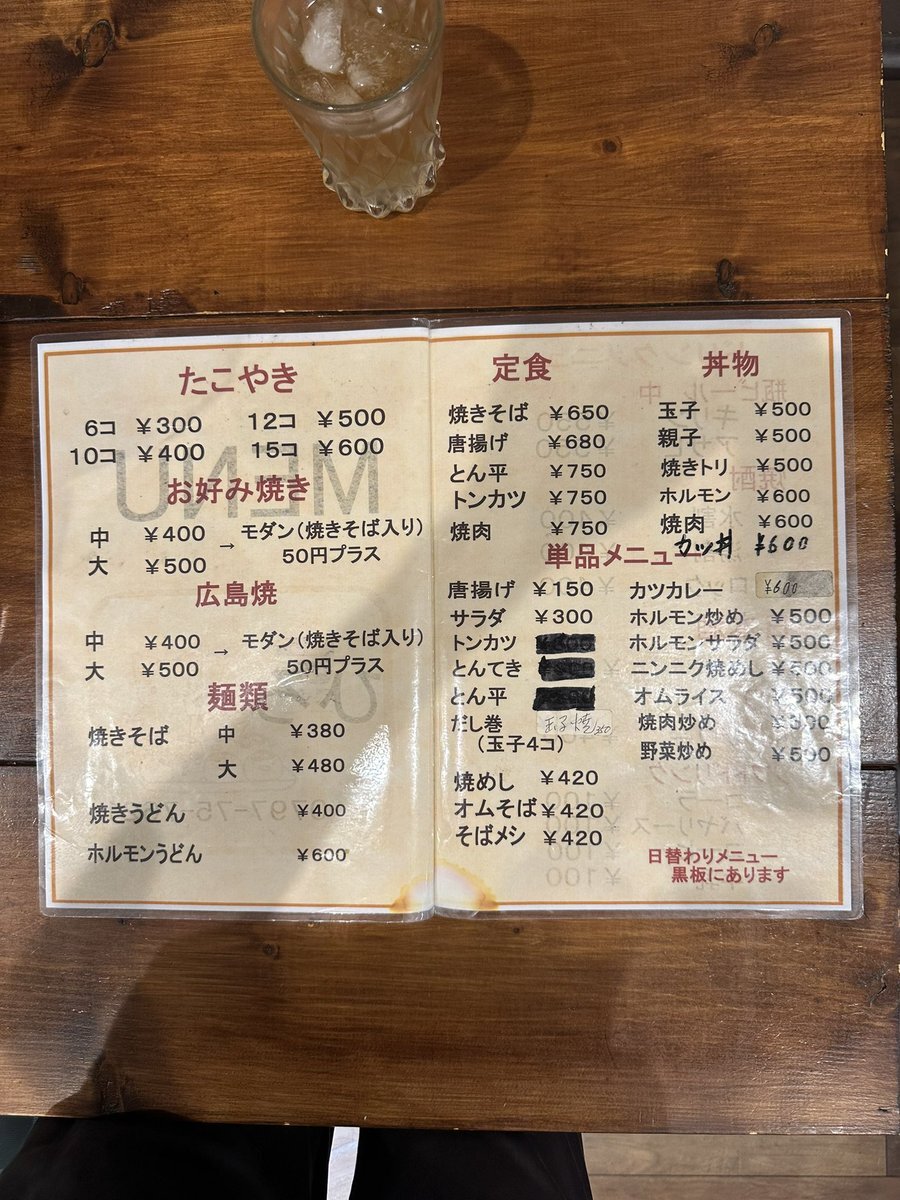 たこやき
6コ ￥300 12コ ￥500
10コ ￥400 15コ ￥600
お好み焼き
中 ￥400
大 ￥500
→ モダン(焼きそば入り)
50円プラス
広島焼
中 ￥400
大 ￥500
→ モダン(焼きそば入り)
50円プラス
麺類
焼きそば 中 ￥380
大 ￥480
焼きうどん ￥400
ホルモンうどん ￥600
定食
焼きそば ￥650
唐揚げ ￥680
とん平 ￥750
トンカツ ￥750
焼肉 ￥750
丼物
玉子 ￥500
親子 ￥500
焼きトリ ￥500
ホルモン ￥600
焼肉 ￥600
カツ丼 ￥600
単品メニュー
唐揚げ ￥150
サラダ ￥300
トンカツ
とんてき
とん平
だし巻 玉子焼 350
(玉子4コ)
焼めし ￥420
オムそば ￥420
そばメシ ￥420
カツカレー ￥600
ホルモン炒め ￥500
ホルモンサラダ ￥500
ニンニク焼めし ￥500
オムライス ￥500
焼肉炒め
野菜炒め ￥500
日替わりメニュー
黒板にあります